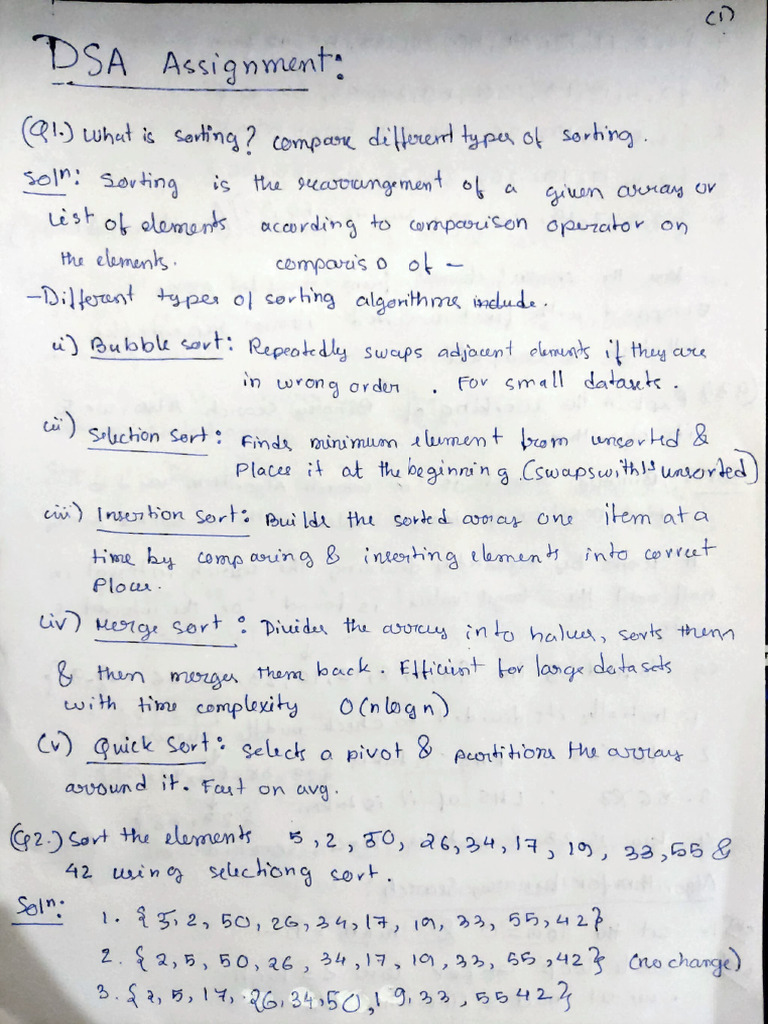 (1)
DSA Assignment:
(Q1.) What is sorting? compare different types of sorting.
Soln: Sorting is the rearrangement of a given array or
List of elements according to comparison operator on
the elements. comparis o of -
- Different types of sorting algorithms include.
ii) Bubble sort: Repeatedly swaps adjacent elements if they are
in wrong order . For small datasets.
(ii) Selection sort: Finds minimum element from unsorted &
Places it at the beginning (swaps with 1st unsorted)
(iii) Insertion Sort: Builds the sorted array one item at a
time by comparing & inserting elements into correct
Place.
(iv) Merge sort: Divides the array into halves, sorts them
& then merges them back. Efficient for large datasets
with time complexity O(nlogn)
(v) Quick Sort: selects a pivot & partitions the array
around it. Fast on avg.
(Q2.) Sort the elements 5, 2, 50, 26, 34, 17, 19, 33, 55 &
42 using selectiong sort.
Soln: 1. {5, 2, 50, 26, 34, 17, 19, 33, 55, 42}
2. {2, 5, 50, 26, 34, 17, 19, 33, 55, 42} (no change)
3. {2, 5, 17, 26, 34, 50, 19, 33, 55 42}